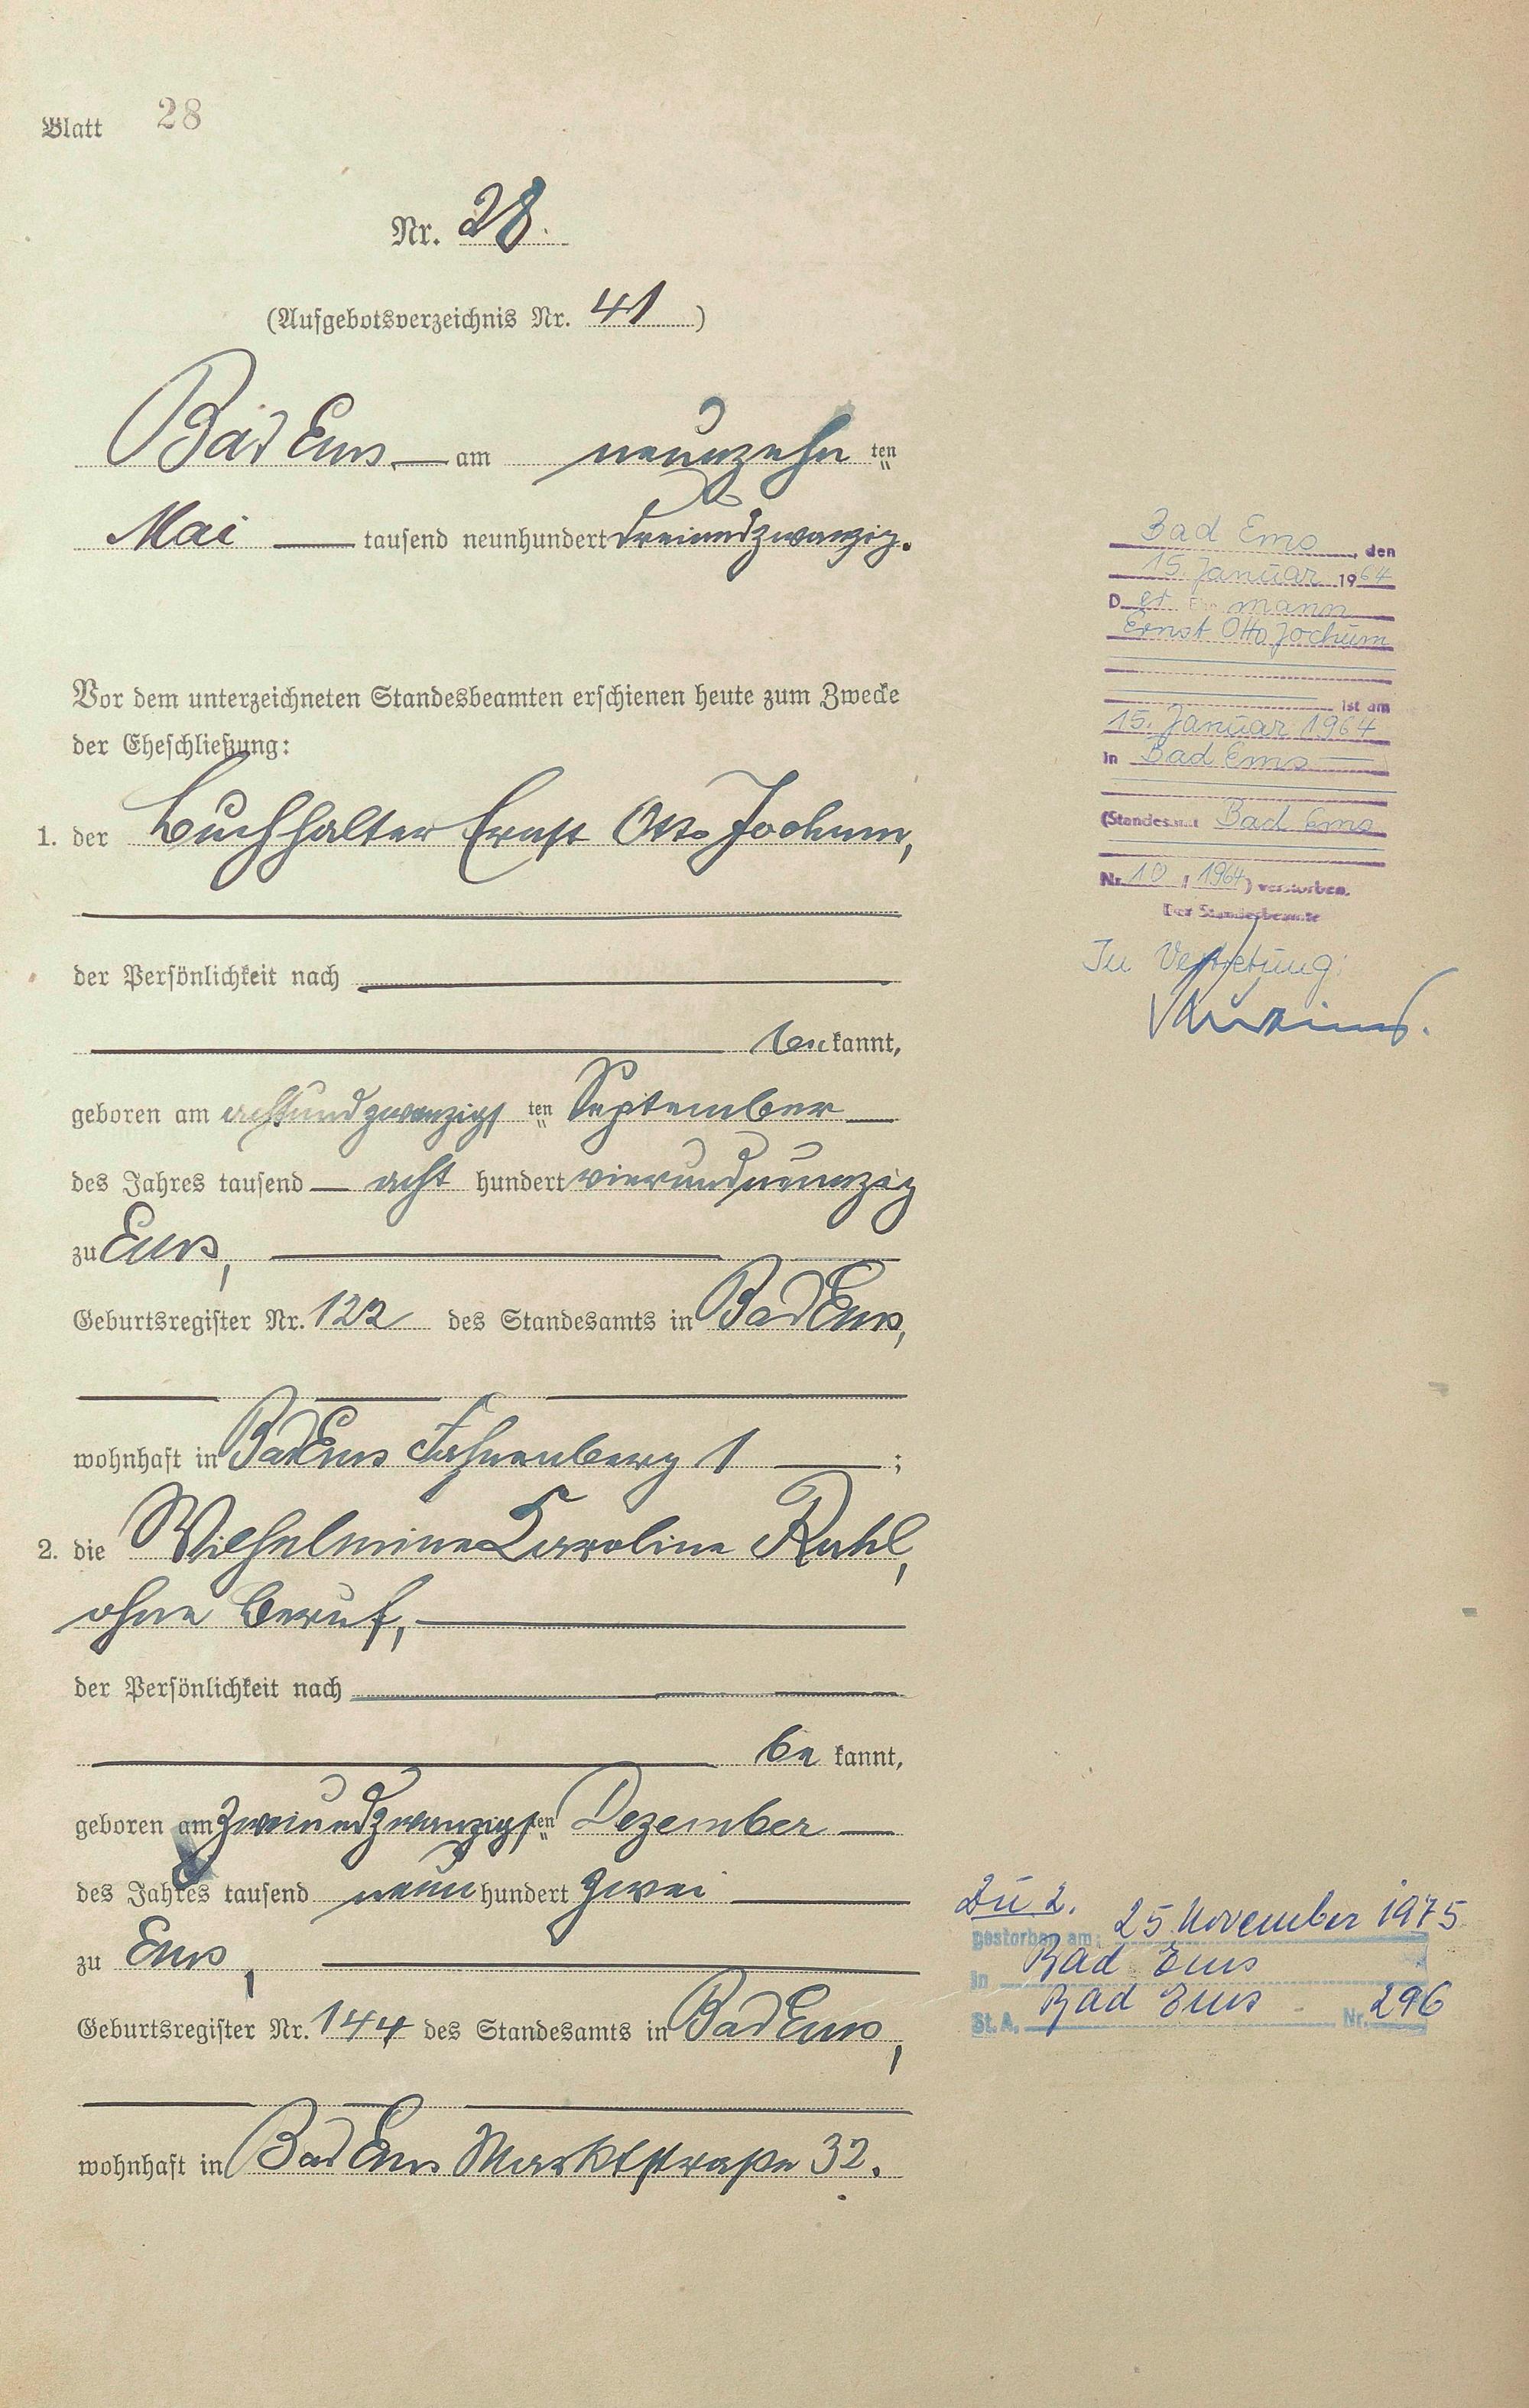 Blatt 28
Nr. 28.
(Aufgebotsverzeichnis Nr. 41)
Bad Ems — am neunzehnten
Mai — tausend neunhundert dreiundzwanzig.
Vor dem unterzeichneten Standesbeamten erschienen heute zum Zwecke
der Eheschließung:
1. der Buchhalter Ernst Otto Jochum,
der Persönlichkeit nach
bekannt,
geboren am achtundzwanzigsten September
des Jahres tausend — acht hundert vierundneunzig
zu Ems,
Geburtsregister Nr. 122 des Standesamts in Bad Ems,
wohnhaft in Bad Ems Fahnenberg 1 ;
2. die Wilhelmine Karoline Ruhl,
ohne Beruf,
der Persönlichkeit nach
bekannt,
geboren am zweiundzwanzigsten Dezember
des Jahres tausend neun hundert zwei
zu Ems,
Geburtsregister Nr. 144 des Standesamts in Bad Ems,
wohnhaft in Bad Ems Marktstraße 32.
Bad Ems, den
15. Januar 1964
Der Ehemann
Ernst Otto Jochum
ist am
15. Januar 1964
in Bad Ems
(Standesamt Bad Ems
Nr. 10 / 1964) verstorben.
Der Standesbeamte
In Vertretung:
Zu 2.
gestorben am: 25. November 1975
in Bad Ems
St. A. Bad Ems Nr. 296